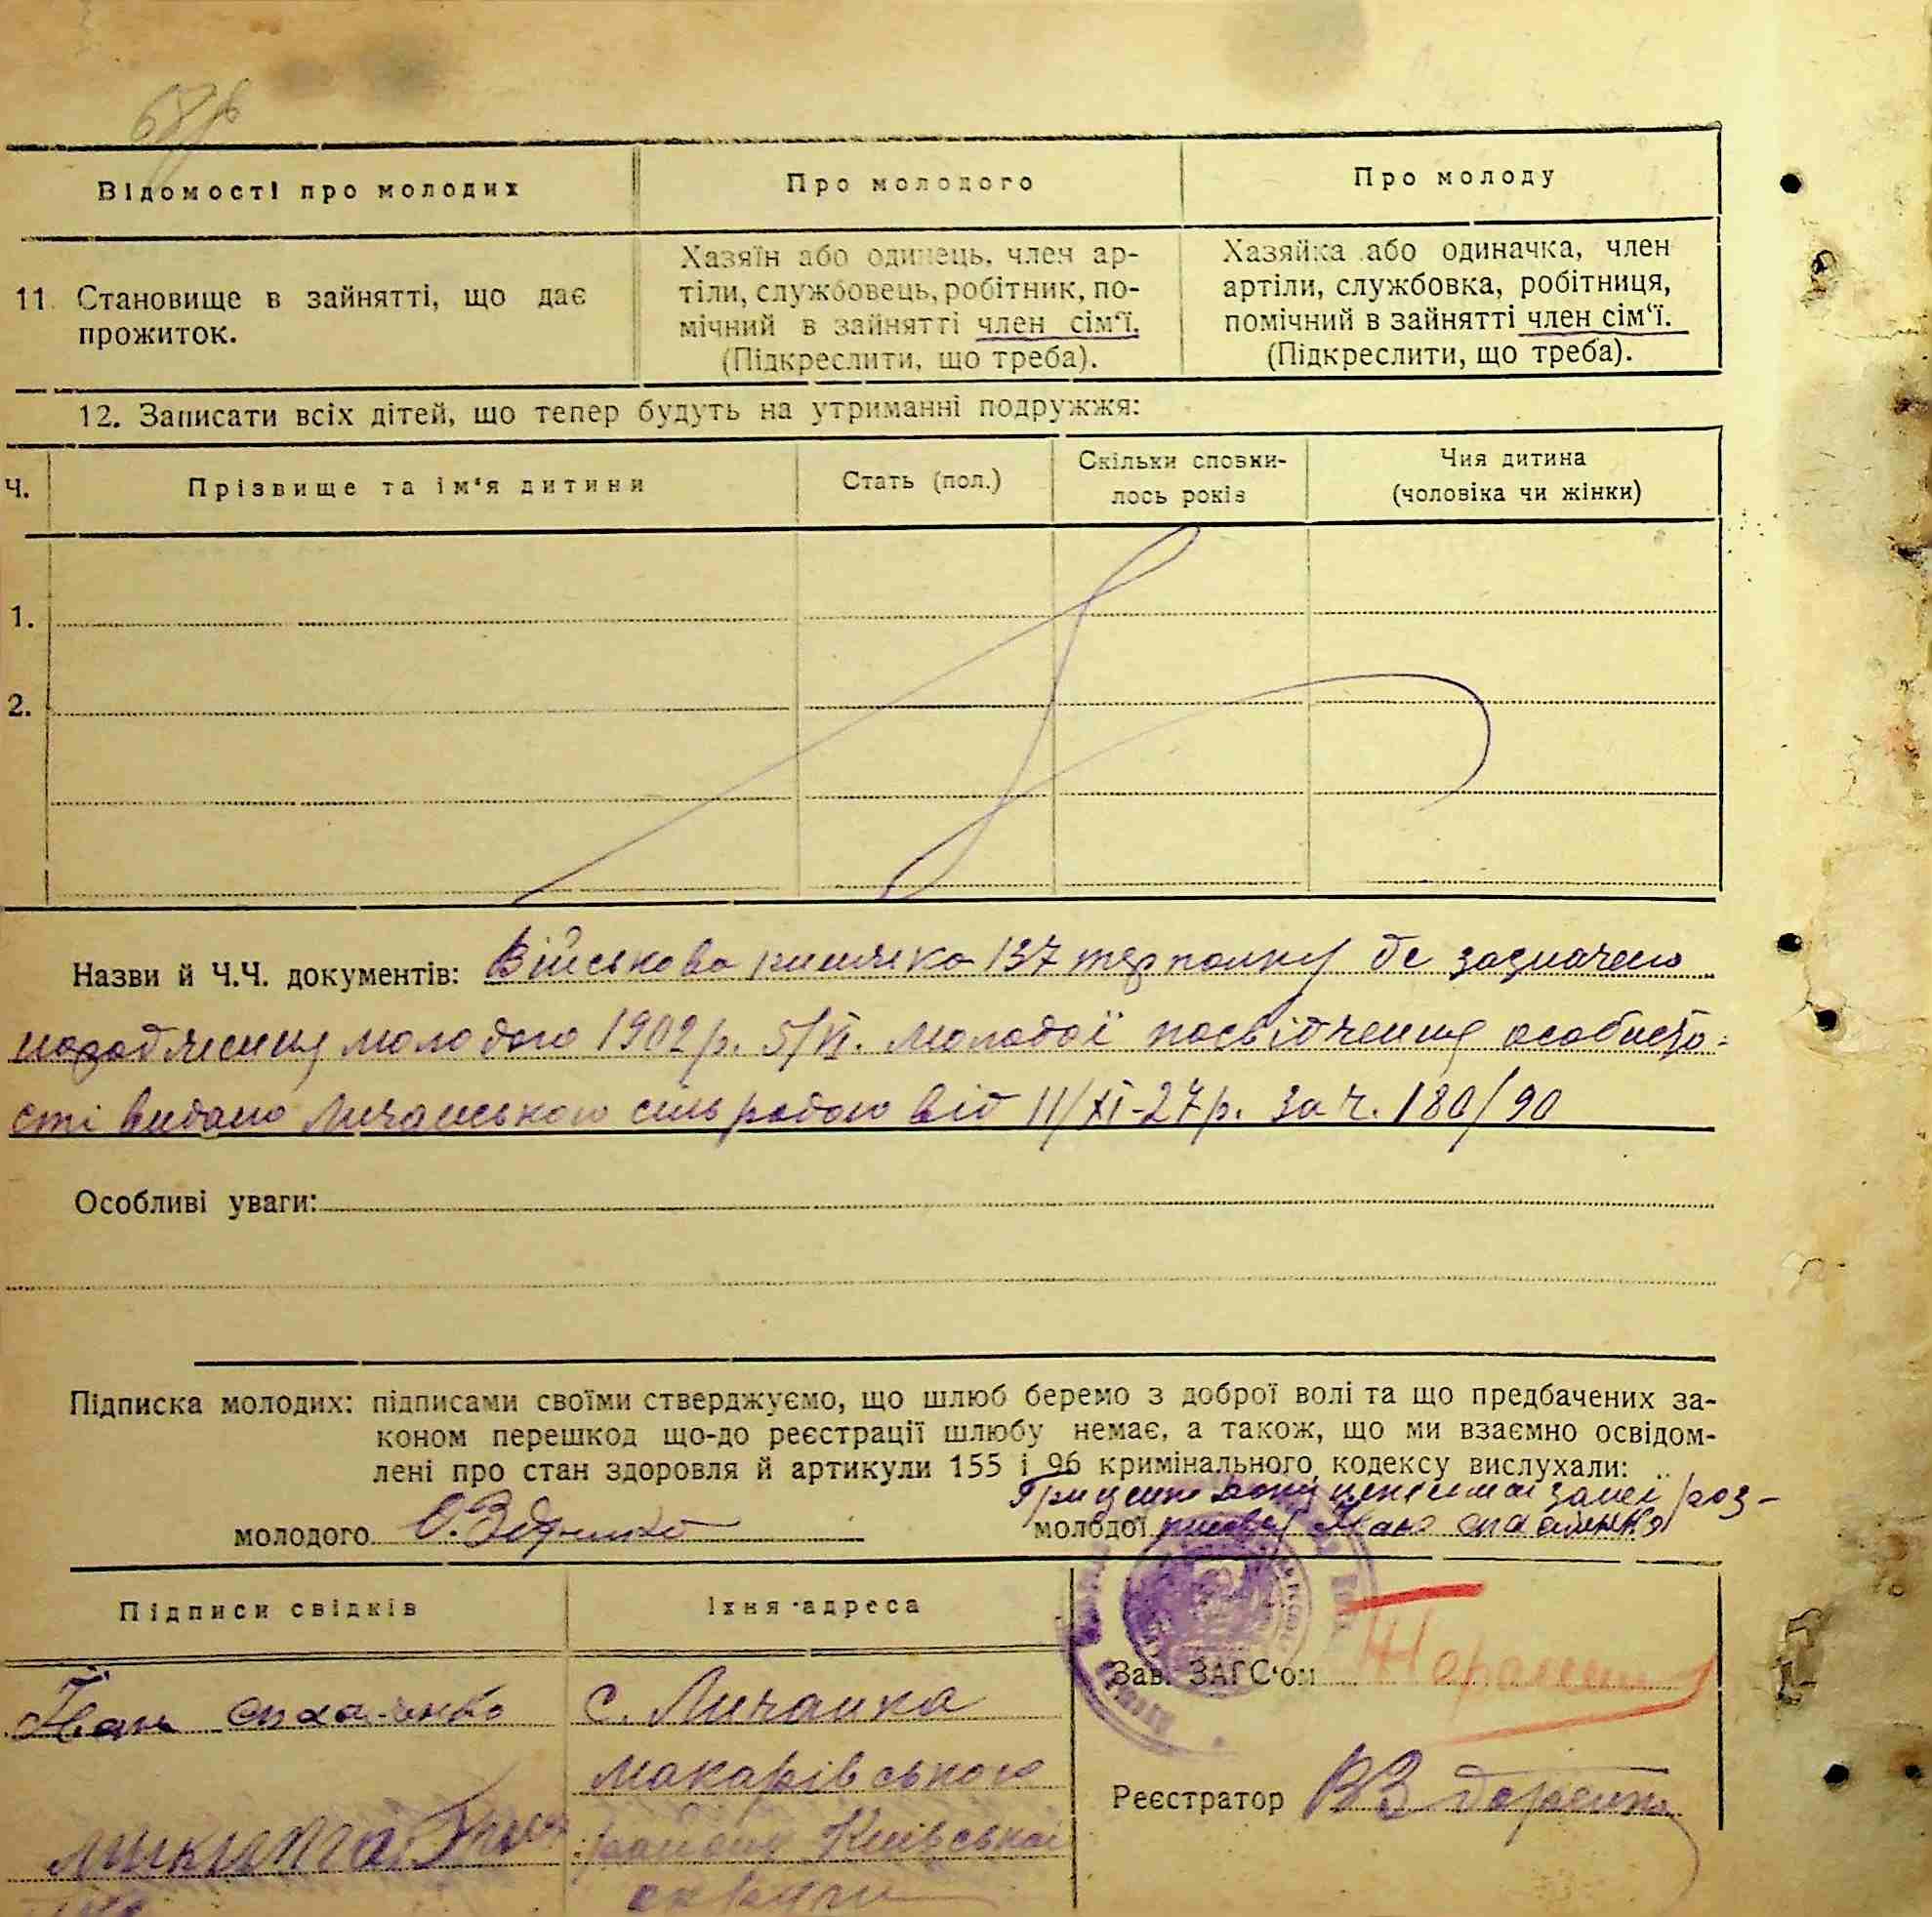 Відомості про молодих
Про молодого
Про молоду
11. Становище в зайнятті, що дає
прожиток.
Хазяїн або одинець, член ар-
тіли, службовець, робітник, по-
мічний в зайнятті член сім‘ї.
(Підкреслити, що треба).
Хазяйка або одиначка, член
артіли, службовка, робітниця,
помічний в зайнятті член сім‘ї.
(Підкреслити, що треба).
12. Записати всіх дітей, що тепер будуть на утриманні подружжя:
Ч.
Прізвище та ім‘я дитини
Стать (пол.)
Скільки сповни-
лось років
Чия дитина
(чоловіка чи жінки)
1.
2.
Назви й Ч.Ч. документів: Військова книжка 137 терполку де зазначено
народження молодого 1902 р. 5/VI. Молодої посвідчення особисто-
сті видано Личанською сільрадою від 11/XI-27 р. за ч. 180/90
Особливі уваги:
Підписка молодих: підписами своїми стверджуємо, що шлюб беремо з доброї волі та що предбачених за-
коном перешкод що-до реєстрації шлюбу немає, а також, що ми взаємно освідом-
лені про стан здоровля й артикули 155 і 96 кримінального кодексу вислухали:
молодого
молодої
Підписи свідків
Їхня адреса
с. Личанка
Макарівського
району Київської
округи
Зав. ЗАГС‘ом
Реєстратор